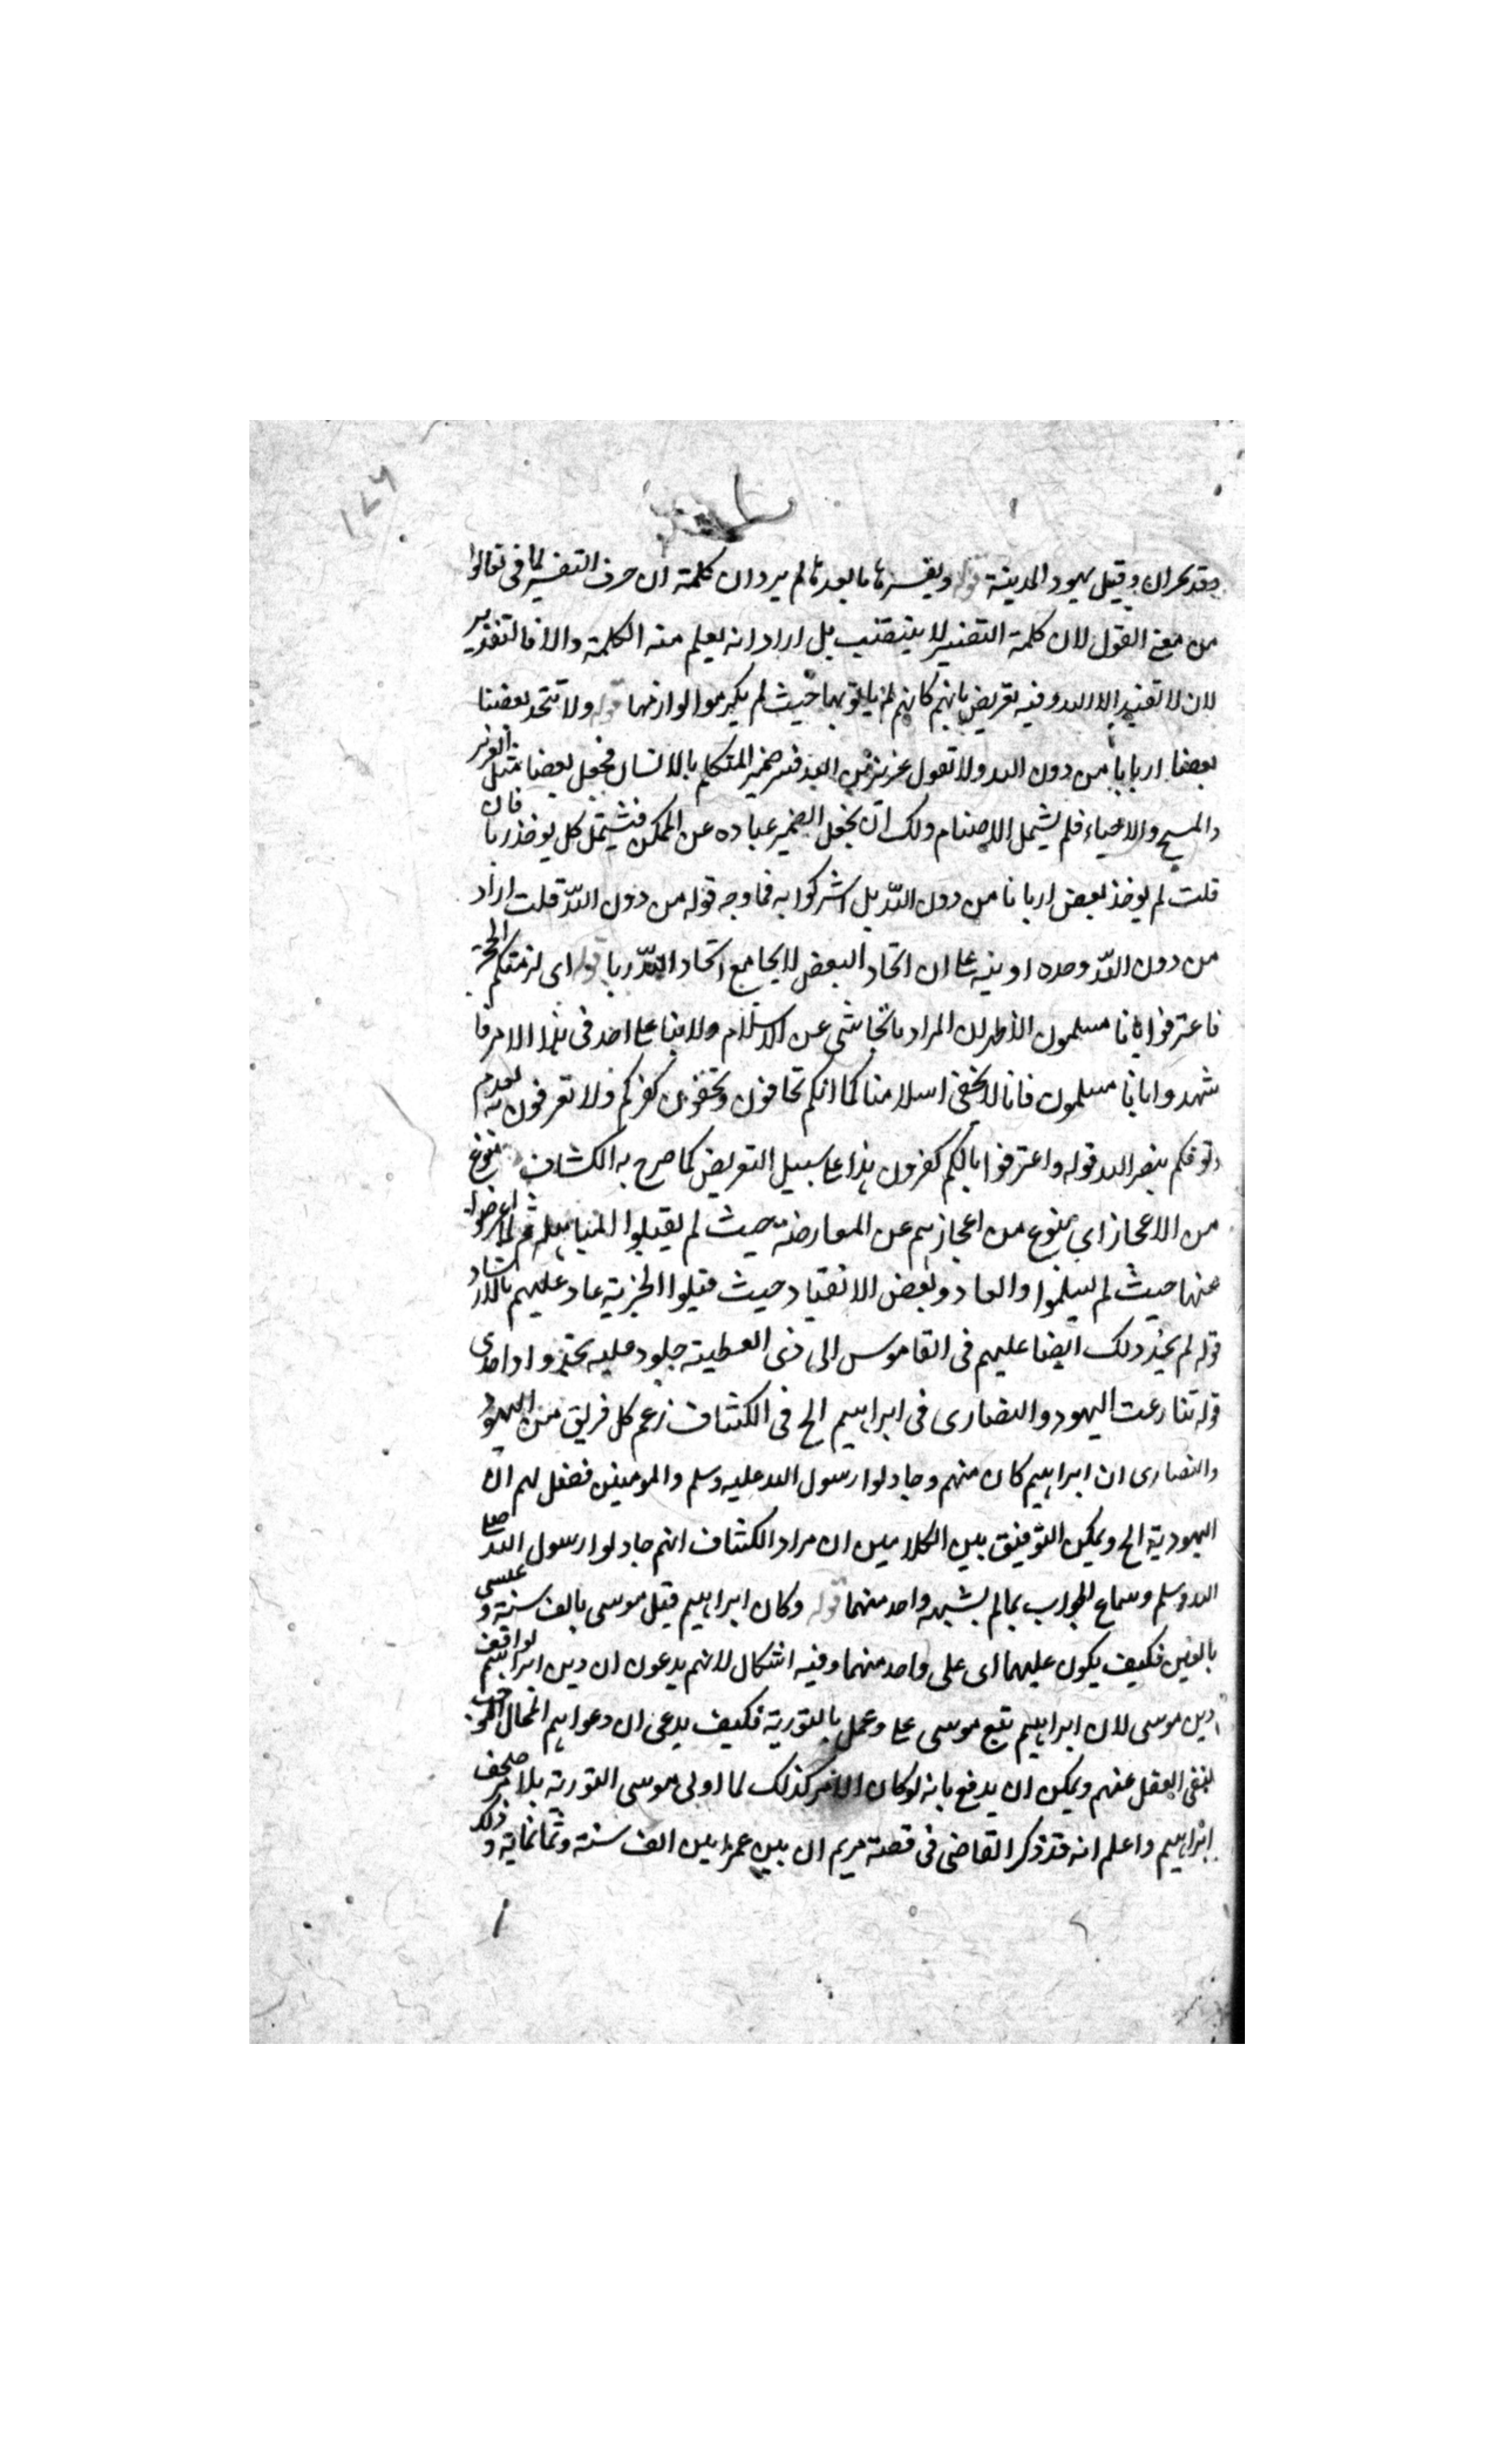 وفد نجران وقيل يهود المدينة قوله ويفسرها ما بعدها لم يرد ان كلمة ان حرف التفسير لما فى تعالوا
من معنى القول لان كلمة التفسير لا ينتصب بل اراد انه يعلم منه الكلمة والا فالتقدير
لان لا نعبد الا الله وفيه تعريض بانهم كانهم لم ياتو بها حيث لم يكرموا لوازمها قوله ولا يتخذ بعضنا
بعضا اربابا من دون الله ولا تقول عزيز ابن الله فسر ضمير المتكلم بالانسان فجعل بعضا مثل العزير
والمسيح والاحياء فلم يشمل الاصنام ولك ان تجعل الضمير عبارة عن الممكن فيشمل كل يوخذ ربا فان
قلت لم يوخذ بعض اربابا من دون الله بل اشركوا به فما وجه قوله من دون الله قلت اراد
من دون الله وحده او ينبه على ان اتخاذ البعض لا يجامع اتخاذ الله ربا قوله اى لزمتكم الحجة
فاعترفوا بانا مسلمون الاظهر ان المراد بالتحاشى عن الاسلام ولا بنا على احد فى هذا الامر فا
شهدوا بانا مسلمون فانا لا نخفى اسلامنا كما انكم تخافون وتخفون كفركم ولا تعرفون به لعدم
وثوقكم بنصر الله قوله واعترفوا بانكم كفرون هذا على سبيل التعريض كما صرح به الكشاف بنوع
من الاعجاز اى بنوع من اعجازهم عن المعارضة حيث لم يقبلوا المباهلة ثم لما اعرضوا
عنها حيث لم يسلموا وانقادوا بعض الانقياد حيث قبلوا الجزية عاد عليهم بالارشاد
قوله لم يجد ذلك ايضا عليهم فى القاموس الى ذى العطية جلود عليه تحتذوا واحدى
قوله تنازعت اليهود والنصارى فى ابراهيم الخ فى الكشاف زعم كل فريق من اليهود
والنصارى ان ابراهيم كان منهم وجادلوا رسول الله عليه وسلم والمومنين فقيل لهم ان
اليهودية الخ ويمكن التوفيق بين الكلامين ان مراد الكشاف انهم جادلوا رسول الله صلى
الله وسلم وسماع الجواب بما لم يشبه واحد منهما قوله وكان ابراهيم قبل موسى بالف سنة وعيسى
بالفين فكيف يكون عليهما اى على واحد منهما وفيه اشكال لانهم يدعون ان دين ابراهيم يوافق
دين موسى لان ابراهيم تبع موسى على وعمل بالتورية فكيف يدعى ان دعواهم المحال الموجب
لنفى العقل عنهم ويمكن ان يدفع بانه لو كان الامر كذلك لما اوتى موسى التورية بلا مر صحف
ابراهيم واعلم انه قد ذكر القاضى فى قصة مريم ان بين عمرانين الف سنة وثمانماية وذلك